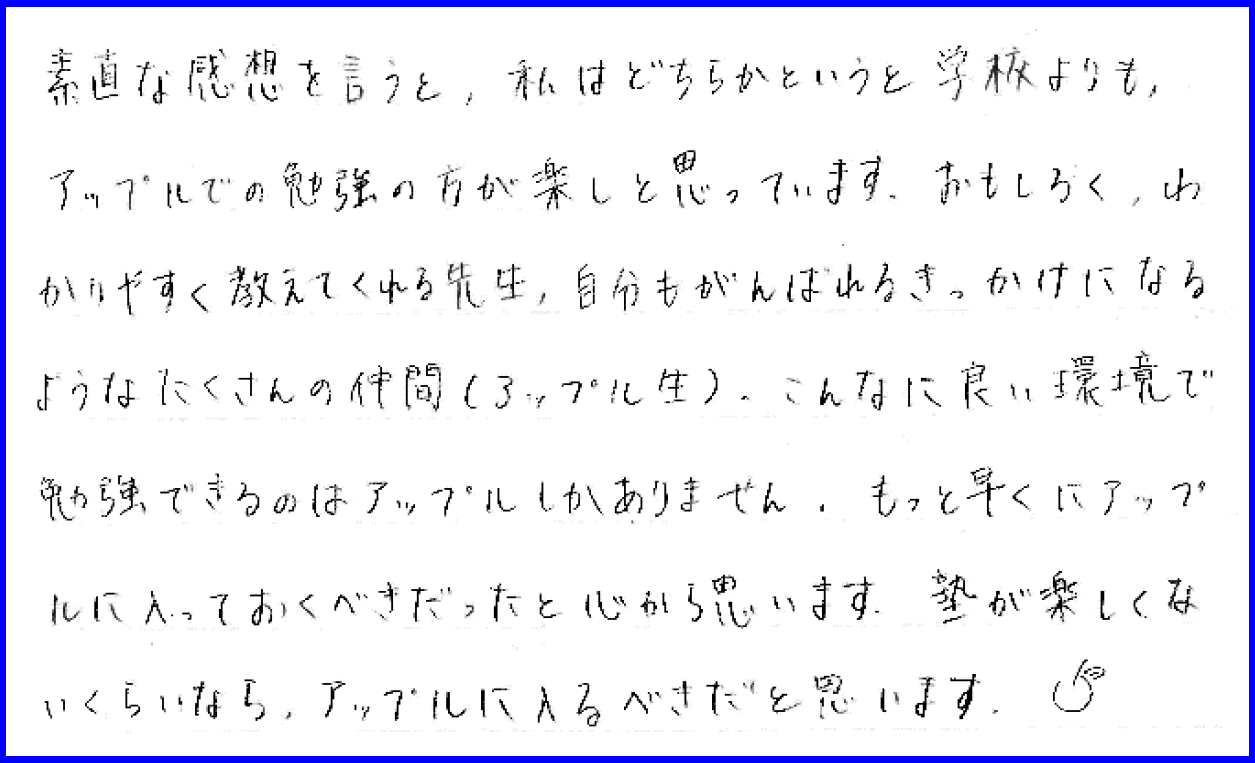 素直な感想を言うと，私はどちらかというと学校よりも，
アップルでの勉強の方が楽しと思っています．おもしろく，わ
かりやすく教えてくれる先生，自分もがんばれるきっかけになる
ようなたくさんの仲間（アップル生）．こんなに良い環境で
勉強できるのはアップルしかありません．もっと早くにアップ
ルに入っておくべきだったと心から思います．塾が楽しくな
いくらいなら，アップルに入るべきだと思います．